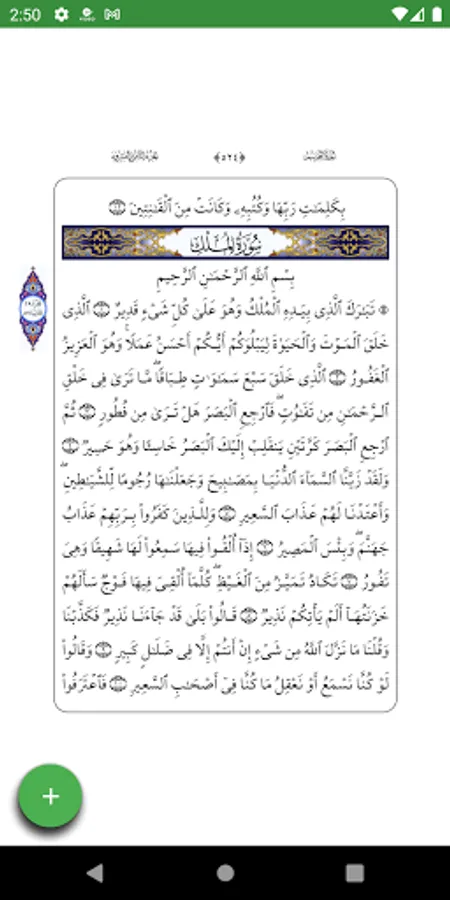 2:50
﴿٥٢٤﴾
بِكَلِمَٰتِ رَبِّهَا وَكُتُبِهِۦ وَكَانَتْ مِنَ ٱلْقَٰنِتِينَ
سُورَةُ المُلْكِ
بِسْمِ ٱللَّهِ ٱلرَّحْمَٰنِ ٱلرَّحِيمِ
تَبَٰرَكَ ٱلَّذِى بِيَدِهِ ٱلْمُلْكُ وَهُوَ عَلَىٰ كُلِّ شَىْءٍ قَدِيرٌ ٱلَّذِى
خَلَقَ ٱلْمَوْتَ وَٱلْحَيَوٰةَ لِيَبْلُوَكُمْ أَيُّكُمْ أَحْسَنُ عَمَلًا ۚ وَهُوَ ٱلْعَزِيزُ
ٱلْغَفُورُ ٱلَّذِى خَلَقَ سَبْعَ سَمَٰوَٰتٍ طِبَاقًا ۖ مَّا تَرَىٰ فِى خَلْقِ
ٱلرَّحْمَٰنِ مِن تَفَٰوُتٍ ۖ فَٱرْجِعِ ٱلْبَصَرَ هَلْ تَرَىٰ مِن فُطُورٍ ثُمَّ
ٱرْجِعِ ٱلْبَصَرَ كَرَّتَيْنِ يَنقَلِبْ إِلَيْكَ ٱلْبَصَرُ خَاسِئًا وَهُوَ حَسِيرٌ
وَلَقَدْ زَيَّنَّا ٱلسَّمَآءَ ٱلدُّنْيَا بِمَصَٰبِيحَ وَجَعَلْنَٰهَا رُجُومًا لِّلشَّيَٰطِينِ ۖ
وَأَعْتَدْنَا لَهُمْ عَذَابَ ٱلسَّعِيرِ وَلِلَّذِينَ كَفَرُوا۟ بِرَبِّهِمْ عَذَابُ
جَهَنَّمَ ۖ وَبِئْسَ ٱلْمَصِيرُ إِذَآ أُلْقُوا۟ فِيهَا سَمِعُوا۟ لَهَا شَهِيقًا وَهِىَ
تَفُورُ تَكَادُ تَمَيَّزُ مِنَ ٱلْغَيْظِ ۖ كُلَّمَآ أُلْقِىَ فِيهَا فَوْجٌ سَأَلَهُمْ
خَزَنَتُهَآ أَلَمْ يَأْتِكُمْ نَذِيرٌ قَالُوا۟ بَلَىٰ قَدْ جَآءَنَا نَذِيرٌ فَكَذَّبْنَا
وَقُلْنَا مَا نَزَّلَ ٱللَّهُ مِن شَىْءٍ إِنْ أَنتُمْ إِلَّا فِى ضَلَٰلٍ كَبِيرٍ وَقَالُوا۟
لَوْ كُنَّا نَسْمَعُ أَوْ نَعْقِلُ مَا كُنَّا فِىٓ أَصْحَٰبِ ٱلسَّعِيرِ فَٱعْتَرَفُوا۟